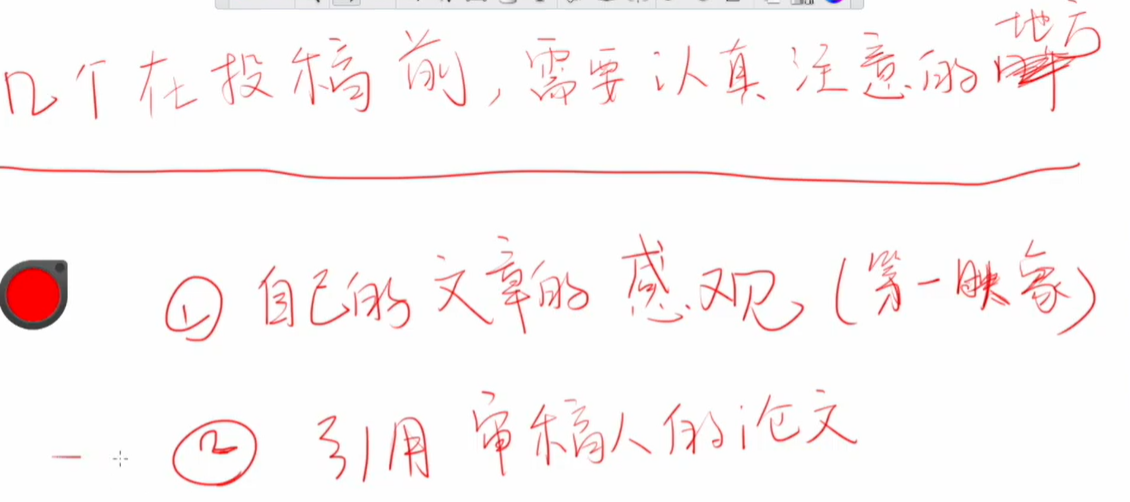 几个在投稿前,需要认真注意的地方
① 自己的文章的感观(第一映象)
② 引用审稿人的论文